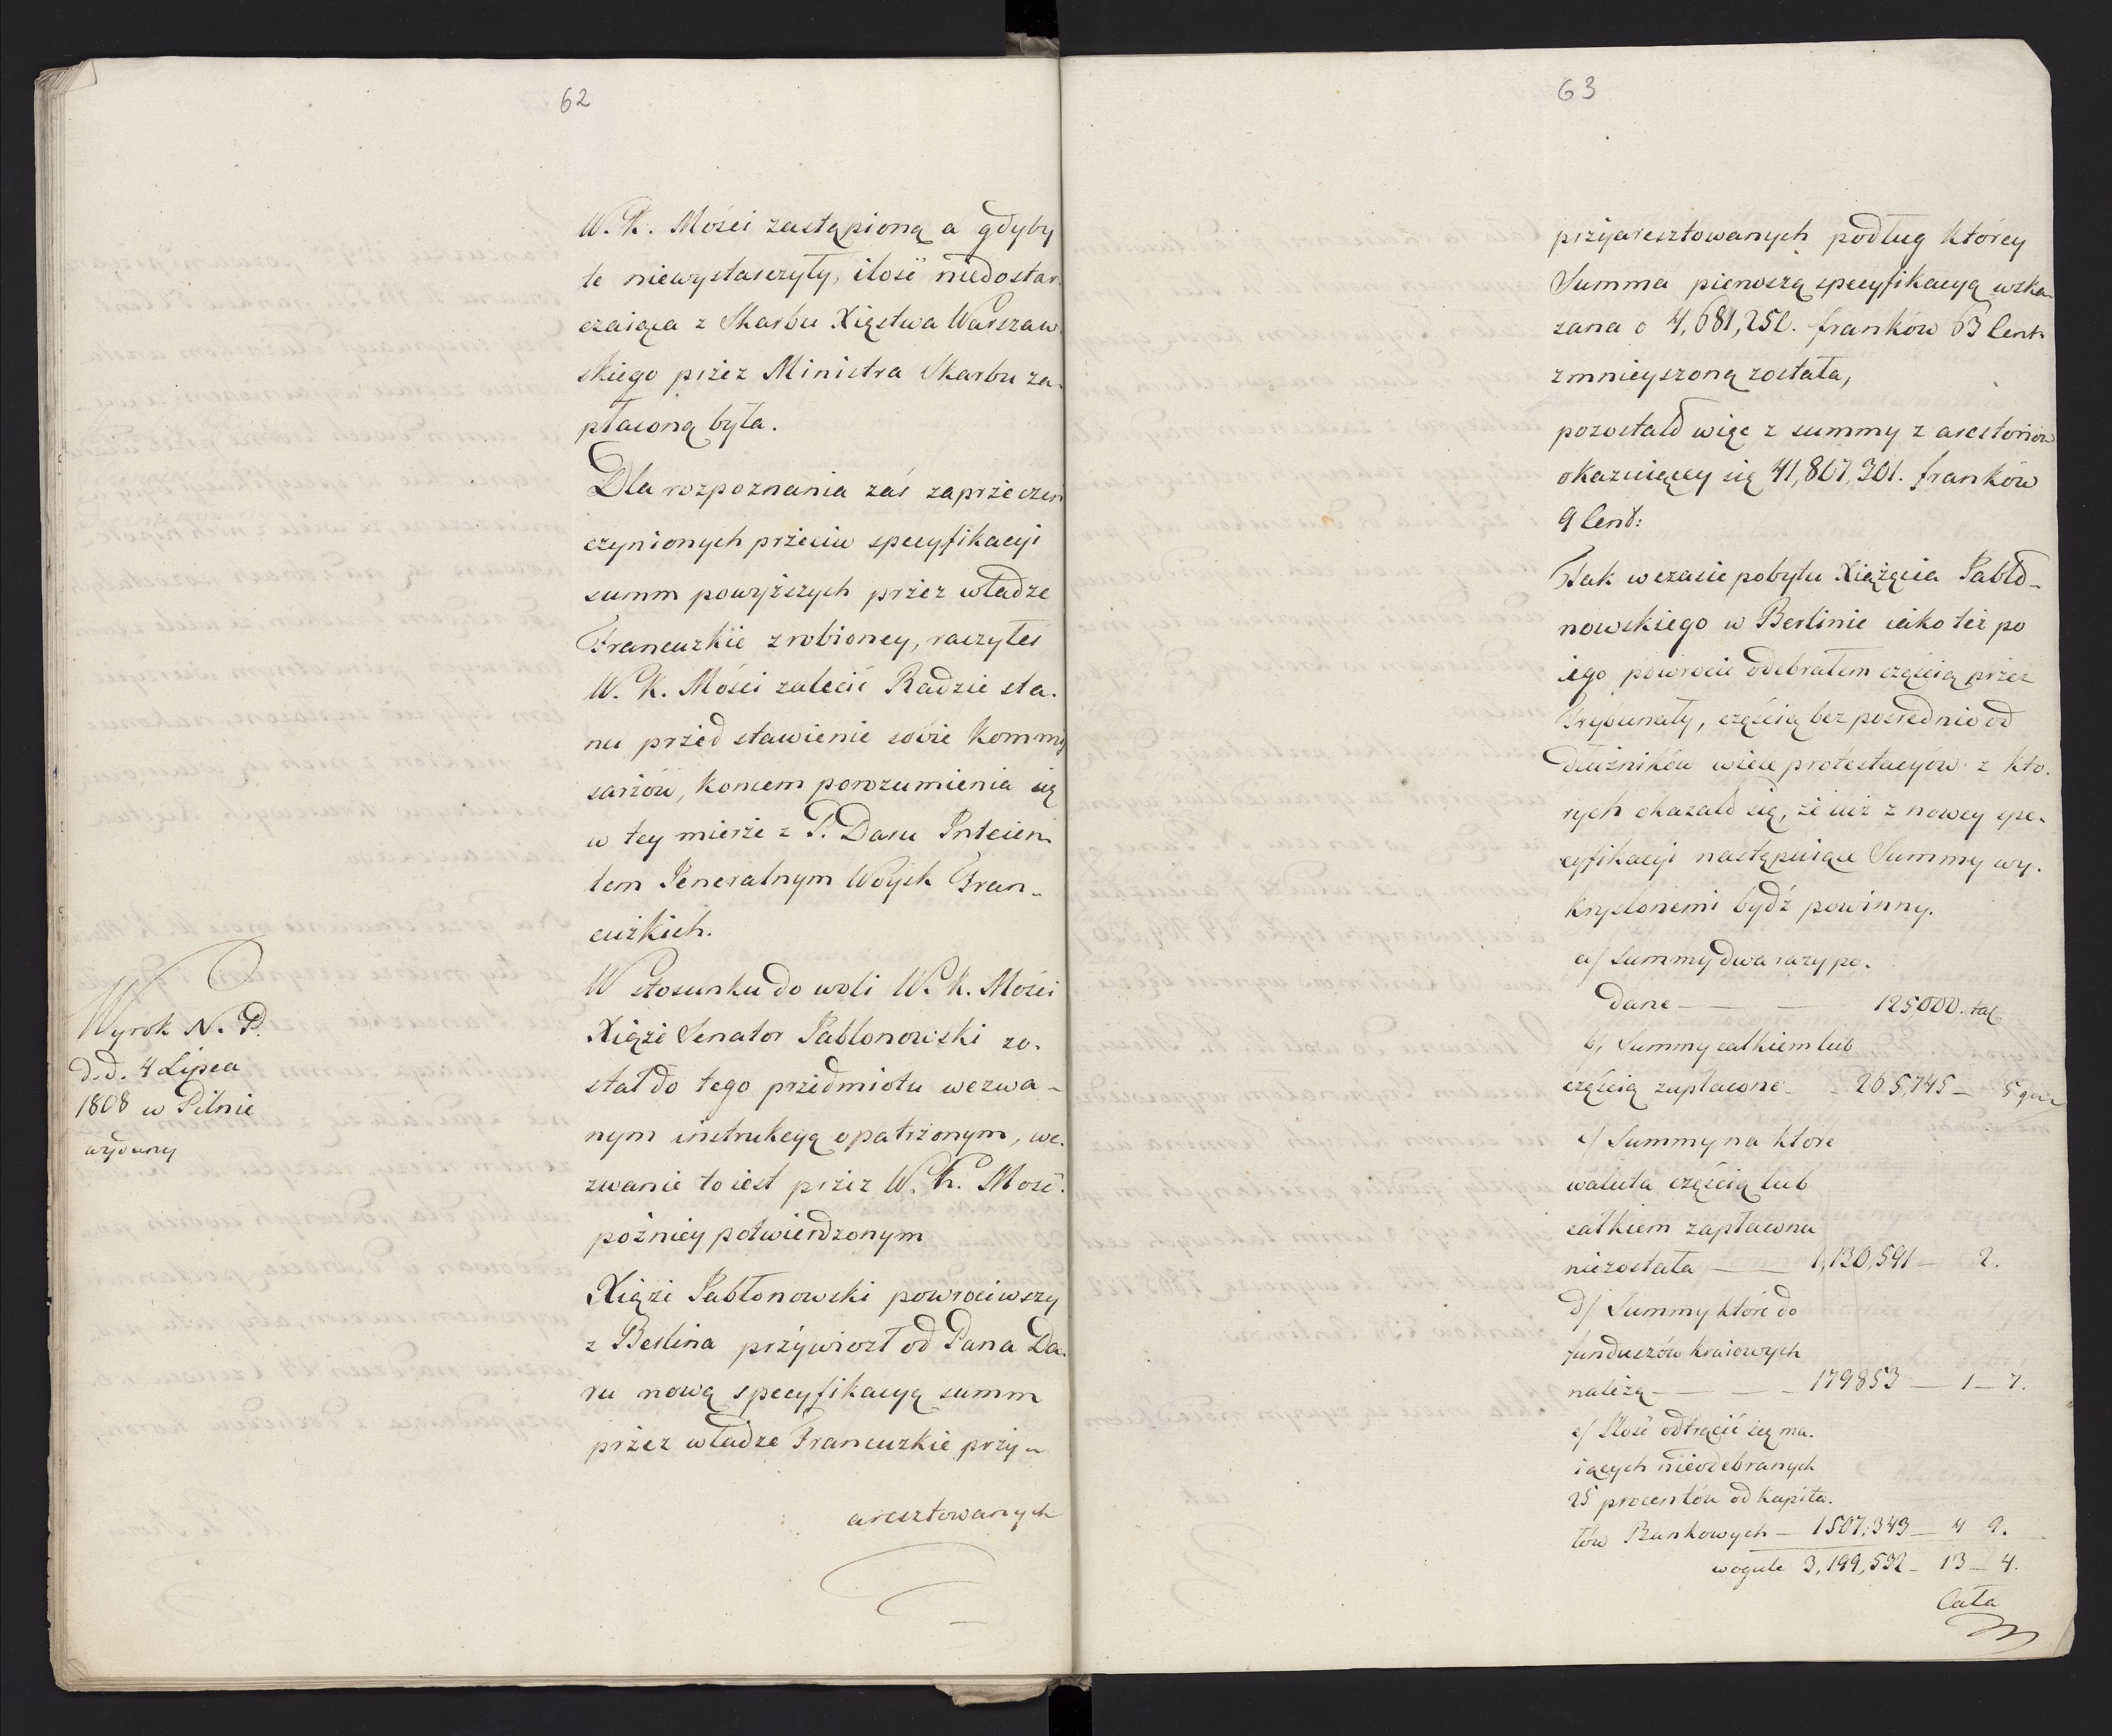 62
W. K. Mości zastąpioną a gdyby
te niewystarczyły, ilość niedostar-
czaiąca z Skarbu Xięstwa Warszaw-
skiego przez Ministra Skarbu za-
płaconą była.
Dla rozpoznania zaś zaprzeczeń
czynionych przeciw specyfikacyi
summ powyższych przez władze
Francuzkie zrobioney, raczyłeś
W. K. Mości zalecić Radzie sta-
nu przed stawienie sobie Kommi
sarzów, koncem porozumienia się
w tey mierze z P. Daru Inten
tem Jeneralnym Woysk Fran-
cuzkich.
W stosunku do woli W. K. Mości
Xiąże Senator Jabłonowski zo-
stał do tego przedmiotu wezwa-
nym instrukcyą opatrzonym, we-
zwanie to iest przez W. K. Mość
poźniey potwierdzonym
Xiąże Jabłonowski powrociwszy
z Berlina przywiozł od Pana Da-
ru nową specyfikacyą summ
przez władze Francuzkie przy-
aresztowanych
Wyrok N. P.
d. d. 4 Lipca
1808 w Pilnie
wydany
63
przyaresztowanych podług którey
Summa pierwszą specyfikacyą wska-
zana o 4,681,252. franków 63 Cent.
zmnieyszoną została,
pozostało więc z summy z aresztorów
okazuiącey się 41,867,301. franków
9 Cent:
Tak w czasie pobytu Xiążęcia Jabło-
nowskiego w Berlinie iako też po
iego powrocie odebrałem częścią przez
Trybunały, częścią bez pośrednio od
Dłużników wiele protestacyów z któ-
rych okazało się, że iuż z nowey spe-
cyfikacyi następuiące Summy wy-
kryslonemi bydź powinny.
a/ Summy dwa razy po-
dane — — 125,000. tal
b/ Summy całkiem lub
częścią zapłacone - - 265,745 — 5 gr
c/ Summy na które
waluta częścią lub
całkiem zapłacona
niezostała — — 1,130,591 — 2.
d/ Summy które do
funduszów kraiowych
należą — — — 179853 — 1 — 7.
e/ Ilość odtrącić się ma-
iących nieodebranych
25 procentów od kapita-
łów Bankowych — 1507,343 — 4 9.
wogule 3,199,532 — 13 — 4.
Cała